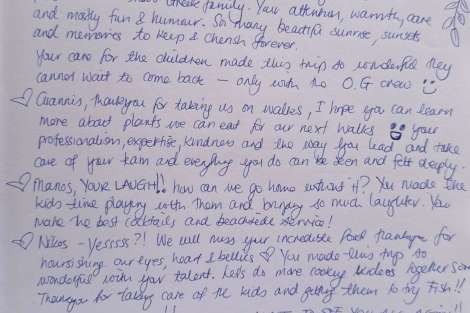 Greek family. Your attention, warmth, care
and mostly fun & humour. So many beautiful sunrise, sunsets
and memories to keep & cherish forever.
Your care for the children made this trip so wonderful they
cannot wait to come back – only with the O.G crew
Giannis, thankyou for taking us on walks, I hope you can learn
more about plants we can eat for our next walks Your
professionalism, expertise, kindness and the way you lead and take
care of your team and everything you do can be seen and felt deeply.
Manos, YOUR LAUGH!! how can we go home without it? You made the
kids time playing with them and bringing so much laughter. You
make the best cocktails and beachside service!
Nikos - Yesssss?! We will miss your incredible food thankyou for
nourishing our eyes, heart & bellies You made this trip so
wonderful with your talent. Let's do more cooking videos together soon
Thankyou for taking care of the kids and getting them to try Fish!!